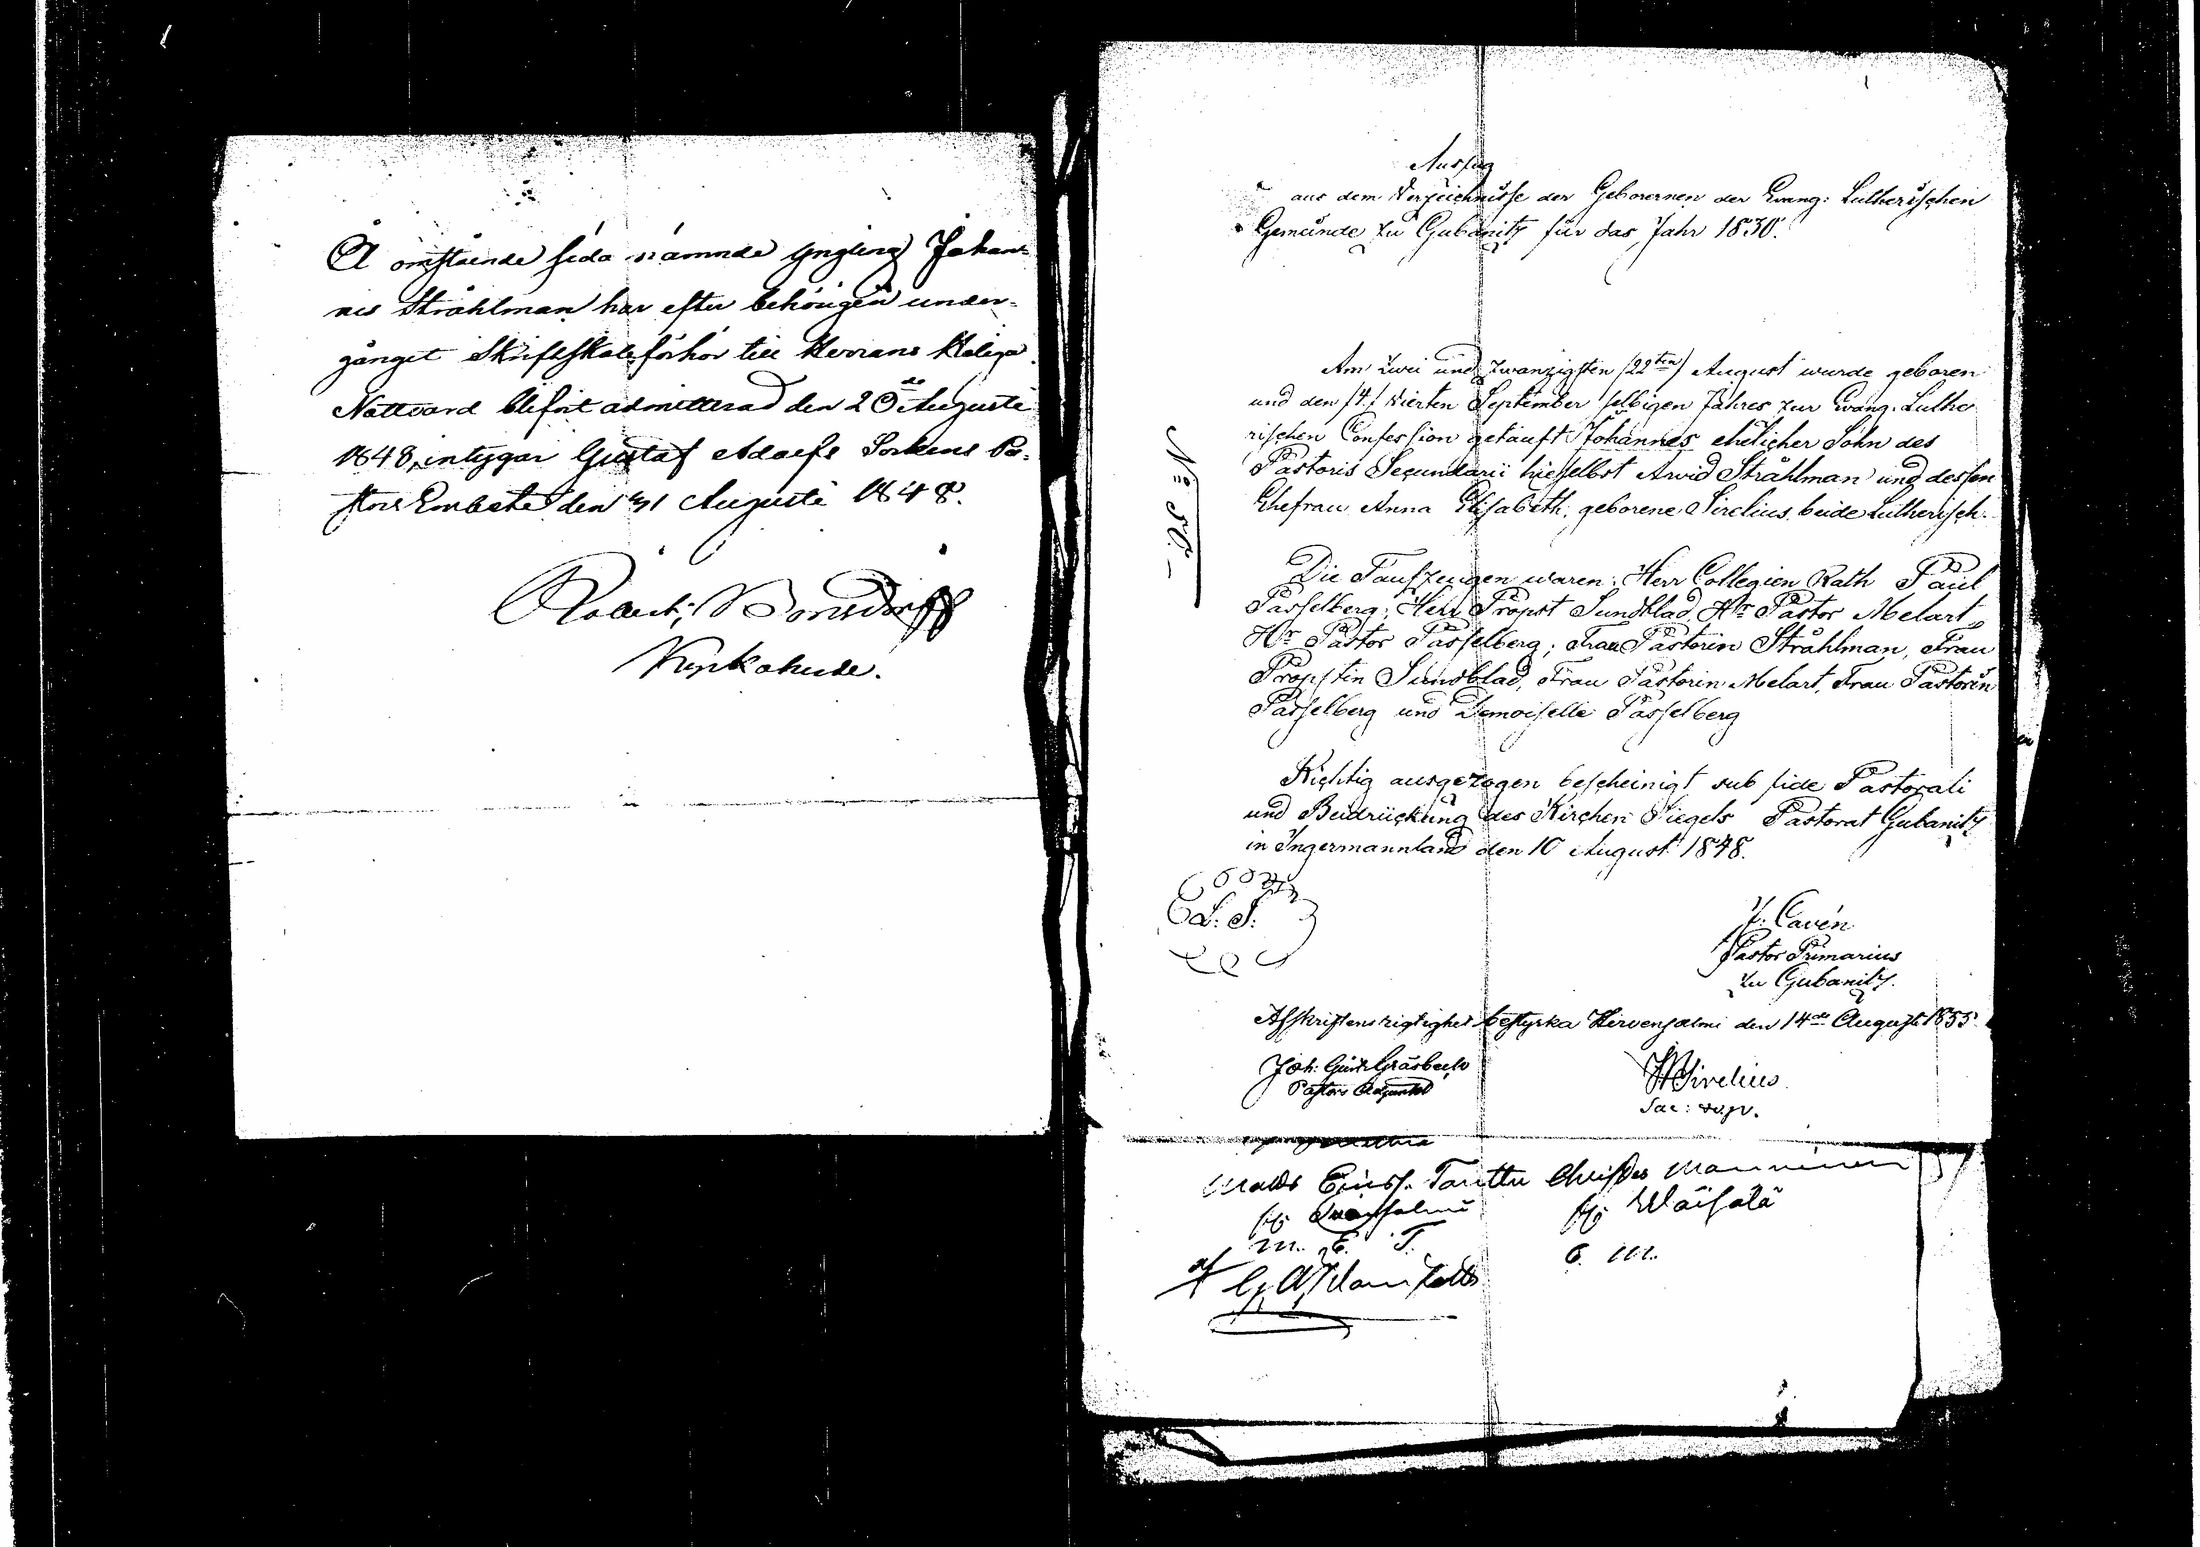 Å omstående sida nämnde Yngling Johan-
nes Stråhlman har efter behörigen under-
gånget Skriftskoleförhör till Herrans Heliga
Nattvard blifvit admitterad den 20de Augusti
1848, intygar Gustaf Adolfs Sockens Pa-
stors Embete den 31 Augusti 1848.
Robert Bonsdorff
Kyrkoherde.
Auszug
aus dem Verzeichnisse der Geborenen der Evang: Lutherischen
Gemeinde zu Gubanitz für das Jahr 1830.
Am zwei und zwanzigsten (22ten) August wurde geboren
und den (4.) vierten September selbigen Jahres zur Evang. Luthe
rischen Confession getauft Johannes ehelicher Sohn des
Pastoris Secundarii hieselbst Arwid Stråhlman und dessen
Ehefrau Anna Elisabeth, geborene Sirelius, beide Lutherisch.
Die Taufzeugen waren: Herr Collegien Rath Paul
Passelberg; Herr Propst Sundblad, Hr Pastor Melart,
Hr Pastor Passelberg; Frau Pastorin Stråhlman, Frau
Propstin Sundblad, Frau Pastorin Melart, Frau Pastorin
Passelberg und Demoiselle Passelberg
Richtig ausgezogen bescheinigt sub fide Pastorali
und Beidrückung des Kirchen Siegels Pastorat Gubanitz
in Ingermannland den 10 August 1848.
L. S.
J. Cavén
Pastor Primarius
zu Gubanitz.
Afskriftens rigtighet bestyrka Hirvensalmi den 14de Augusti 1855.
Joh: Gust: Gråsbeck
Pastors Adjunkt
Sirelius
Sac:
Matts Tanttu Manninen
Väisälä
m. E. T.
C. M.
af